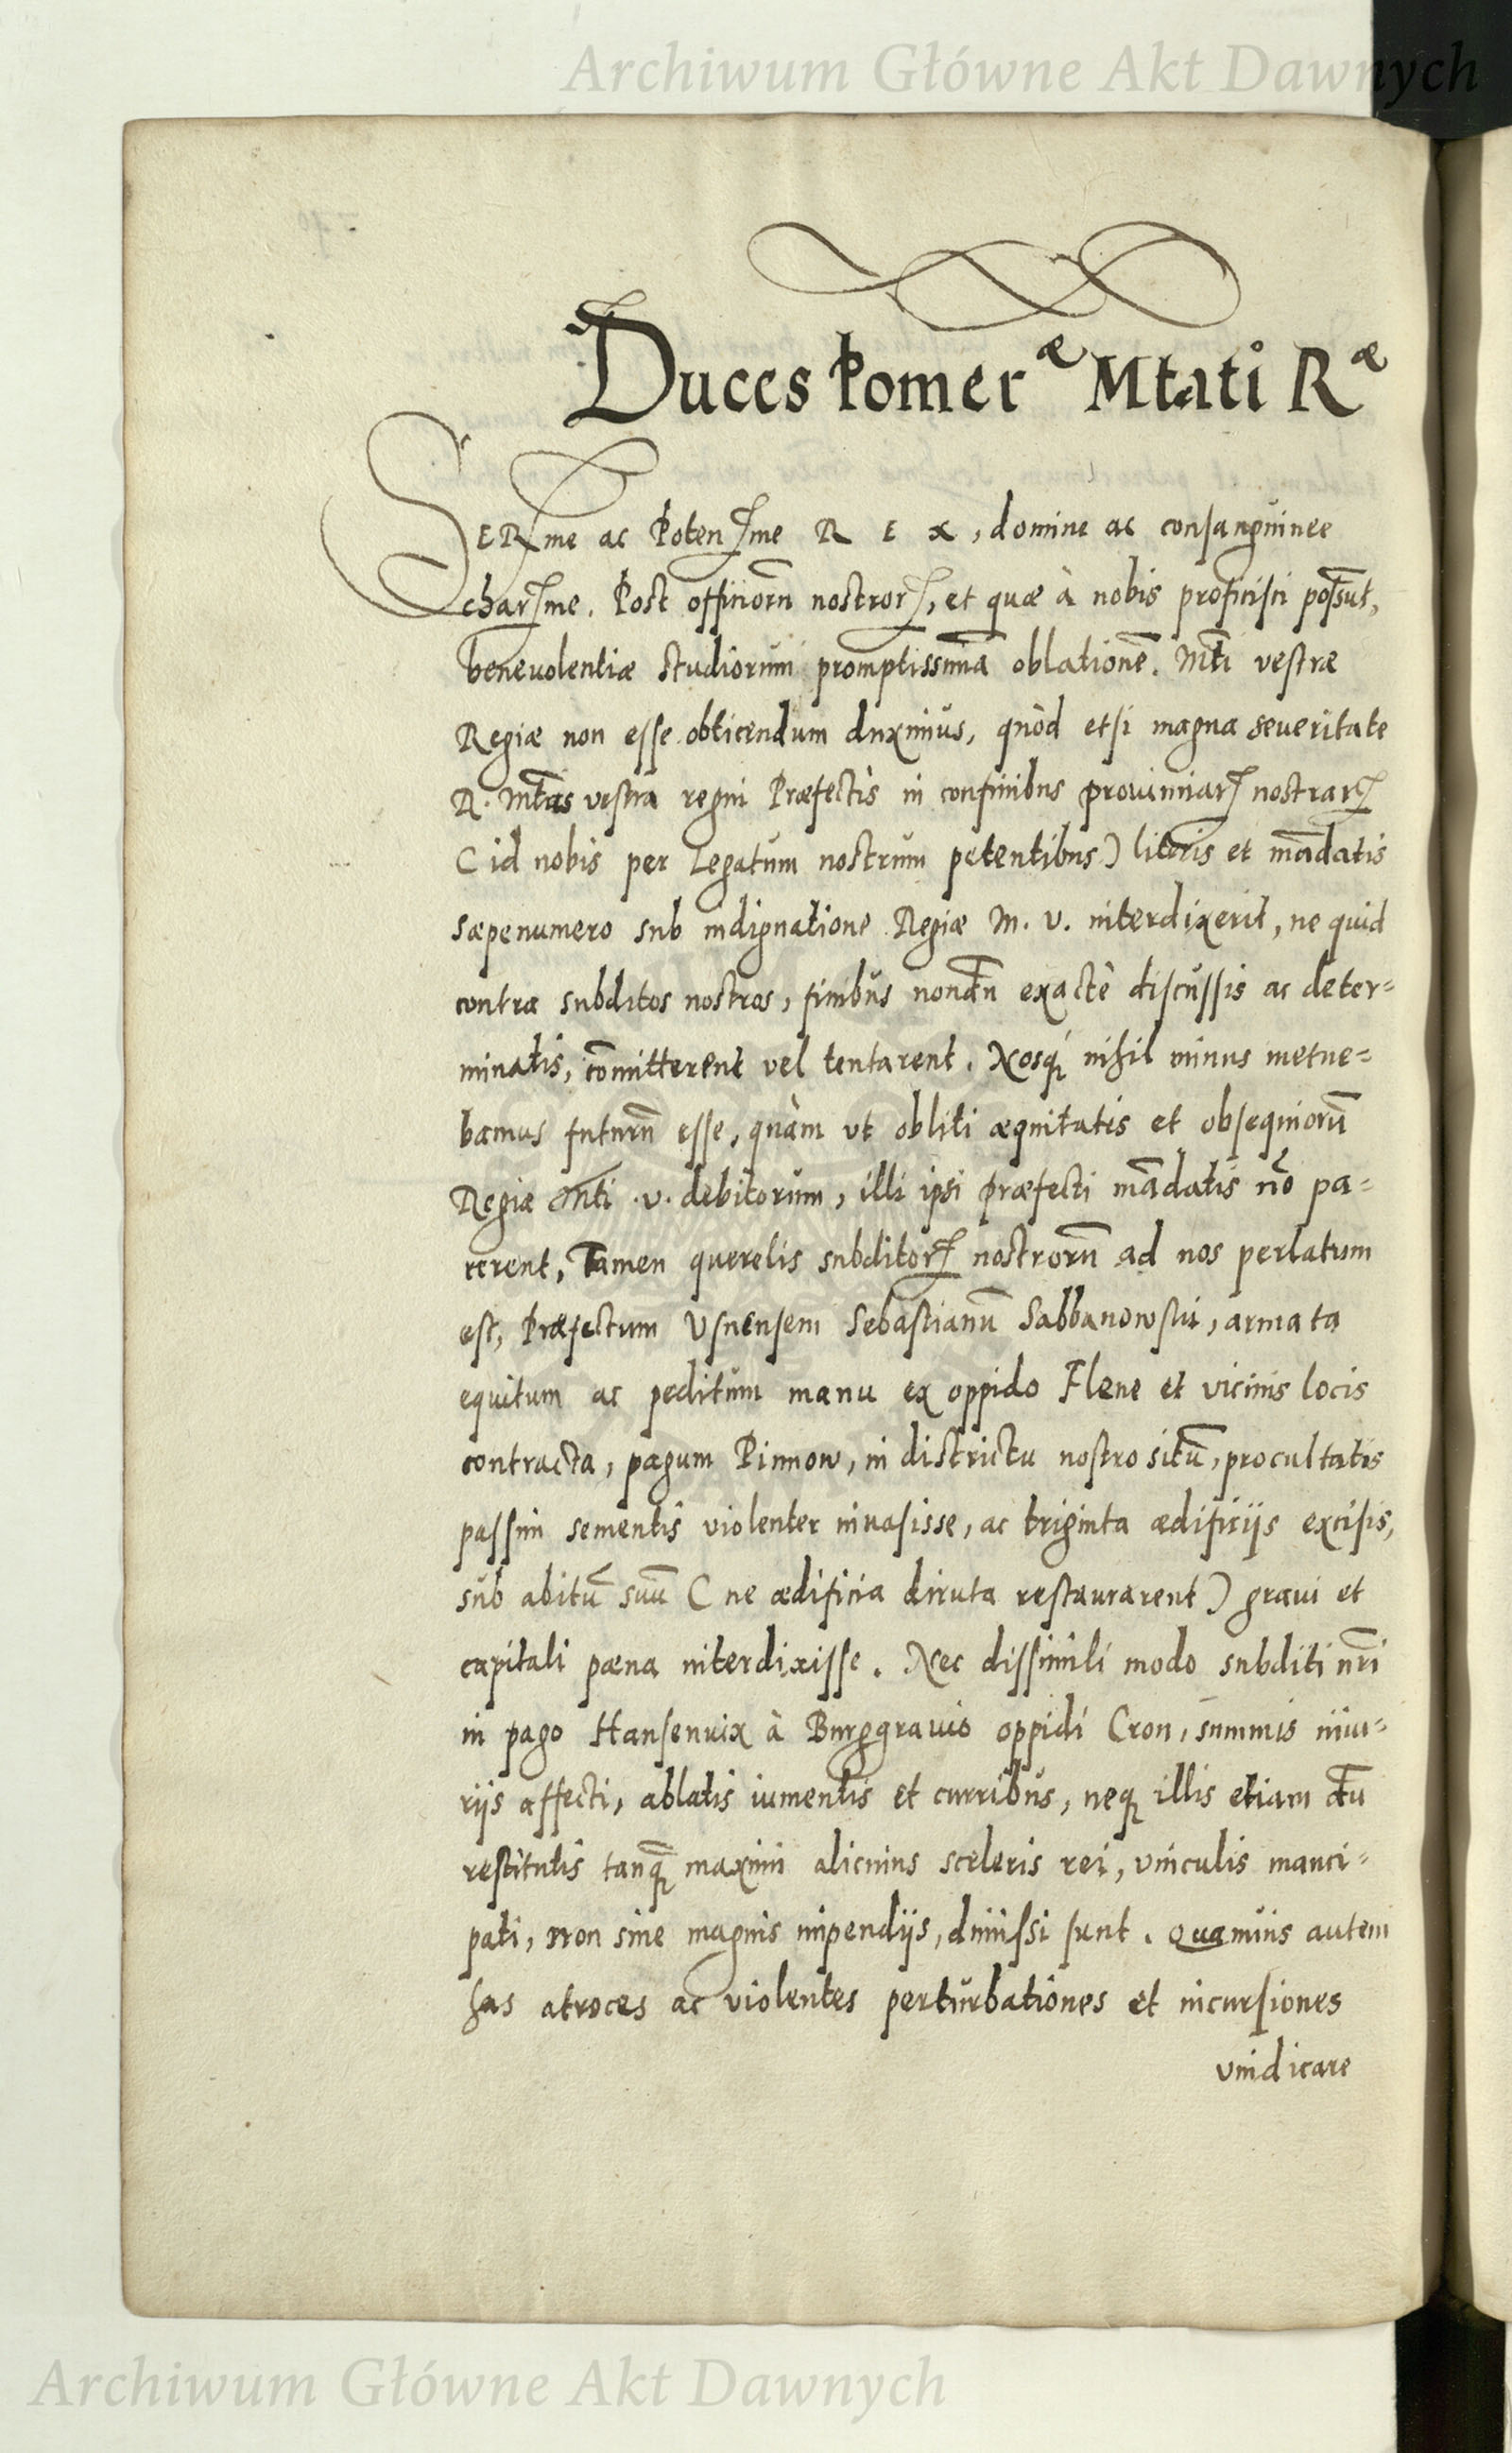 Archiwum Główne Akt Dawnych
Duces Pomerᵃᵉ Mtati Rᵃᵉ
SERSme ac PotenSme REX, domine ac consanguinee
charSme. Post officiorū nostrorꝝ, et quæ à nobis proficisci possūt,
beneuolentiæ studiorum promptissimā oblationē. Mti vestræ
Regiæ non esse obticendum duximus, quòd etsi magna seueritate
R. Mtas vestra regni Præfectis in confinibus prouinciarꝝ nostrarꝝ
(id nobis per Legatum nostrum petentibus) literis et mādatis
sæpenumero sub indignatione Regiæ M. V. interdixerit, ne quid
contra subditos nostros, finibus nondū exactè discussis ac deter=
minatis, cōmitterent vel tentarent. Nosq́ nihil minus metue=
bamus futurū esse, quàm ut obliti æquitatis et obsequiorū
Regiæ Mti .v. debitorum, illi ipsi præfecti mādatis nō pa=
rerent, Tamen querelis subditorꝝ nostrorū ad nos perlatum
est, Præfectum Usnensem Sebastianū Sabbanowski, armata
equitum ac peditum manu ex oppido Flene et vicinis locis
contracta, pagum Pinnow, in districtu nostro sitū, proculcatis
passim sementis violenter inuasisse, ac triginta ædificijs excisis,
sub abitū suū (ne ædificia diruta restaurarent) graui et
capitali pæna interdixisse. Nec dissimili modo subditi nr̄i
in pago Hansenuix à Burggrauio oppidi Cron, summis iniu=
rijs affecti, ablatis iumentis et curribus, neqꝫ illis etiam dū
restitutis tanqꝫ̄ maximi alicuius sceleris rei, vinculis manci=
pati, non sine magnis impendijs, dimissi sunt. Quamuis autem
has atroces ac violentes perturbationes et incursiones
vindicare
Archiwum Główne Akt Dawnych